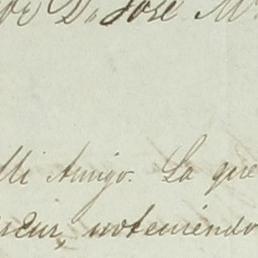 Dn José M
Mi Amigo. La que
noteniendo